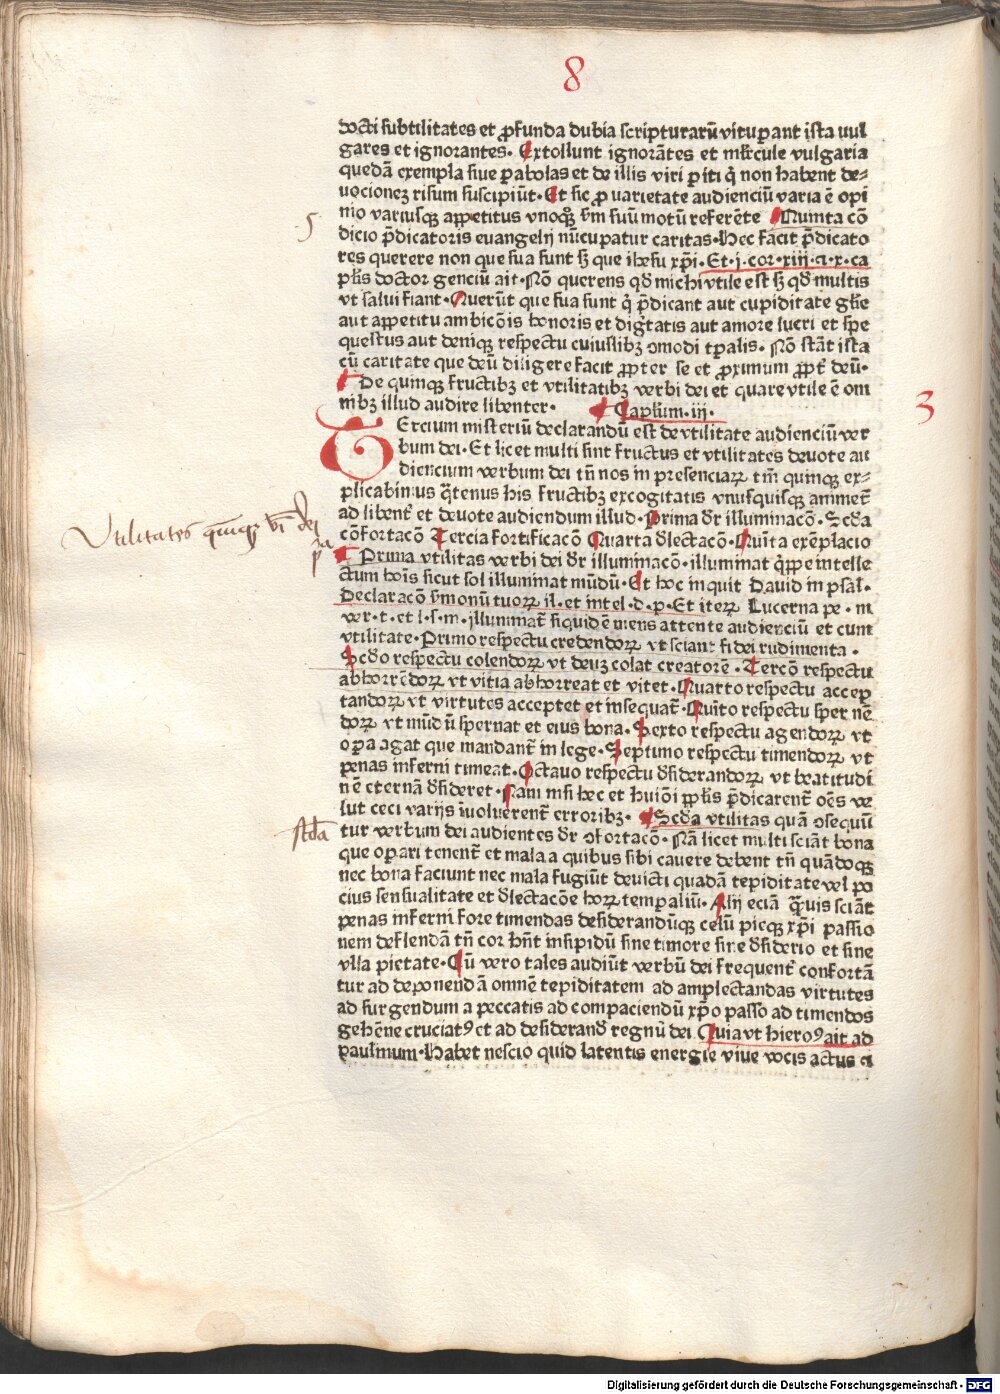 8
docti subtilitates et ꝓfunda dubia scripturarū vituꝑant ista uul
gares et ignorantes. Extollunt ignorātes et mĺrcule vulgaria
quedā exempla siue ꝑabolas et de illis viri ꝑiti q̇ non habent de-
uocionez risum suscipiūt. Et sic ꝓ uarietate audienciū varia ē opi
nio variusqꝫ apꝑetitus vnoqꝫ sm̄ suū motū referēte Quinta cō
5
dicio p̄dicatoris euangelij nūcupatur caritas. Hec facit p̄dicato
res querere non que sua sunt sꝫ que ihesu xp̄i. Et .j. cor. xiij. a. x. ca
pl̄is doctor genciū ait. Nō querens qd̄ michi vtile est sꝫ qd̄ multis
vt salui fiant. Querūt que sua sunt q̇ p̄dicant aut cupiditate gl̄ie
aut apꝑetitu ambicōis honoris et digt̄atis aut amore lucri et spe
questus aut deniqꝫ respectu cuiuslibꝫ ꝯmodi tꝑalis. Nō stāt ista
cū caritate que deū diligere facit ꝓpter se et ꝓximum ꝓpt̄ deū.
De quinqꝫ fructibꝫ et vtilitatibꝫ verbi dei et quare vtile ē om
nibꝫ illud audire libenter. Capl̄um .iij.
3
TErcium misteriū declarandū est de vtilitate audienciū ver
bum dei. Et licet multi sint fructus et vtilitates deuote au
diencium verbum dei tn̄ nos in presenciaꝝ tm̄ quinqꝫ ex-
plicabimus q̄tenus his fructibꝫ excogitatis vnusquisqꝫ animet̄
ad libent̄ et deuote audiendum illud. Prima dr̄ illuminacō. Scd̄a
Vtilitates quinqꝫ vi̅ dei
cōfortacō Tercia fortificacō Quarta dl̄ectacō. Quīta exēplacio
pa
Prima vtilitas verbi dei dr̄ illuminacō. illuminat q̄ppe intelle
ctum hoīs sicut sol illuminat mūdū. Et hoc inquit Dauid in psal.
Declaracō s̄monū tuoꝝ il. et intel. d. p. Et iteꝝ Lucerna pe. m
ver. t. et l. s. m. jlluminat̄ siquidē mens attente audienciū et cum
vtilitate. Primo respectu credendoꝝ vt sciant fidei rudimenta.
Scd̄o respectu colendoꝝ vt deuꝫ colat creatorē. Tercō respectu
abhorrēdoꝝ vt vitia abhorreat et vitet. Quarto respectu accep
tandoꝝ vt virtutes acceptet et insequat̄. Quīto respectu spernē
doꝝ vt mūdū spernat et eius bona. Sexto respectu agendoꝝ vt
oꝑa agat que mandant̄ in lege. Septimo respectu timendoꝝ vt
penas inferni timeat. Octauo respectu dēsiderandoꝝ vt beatitudi
nē eternā dēsideret. Nam nisi hec et huiōi ꝓpl̄is p̄dicarent̄ oēs ve
lut ceci varijs īuoluerent̄ erroribꝫ. Scd̄a vtilitas quā ꝯsequūt
stda
tur verbum dei audientes dr̄ ꝯfortacō. Nā licet multi sciāt bona
que oꝑari tenent̄ et mala a quibus sibi cauere debent tn̄ quādoqꝫ
nec bona faciunt nec mala fugiūt deuicti quadā tepiditate vel po
cius sensualitate et dl̄ectacōe hoꝝ temꝑaliū. Alij eciā q̄uis sciāt
penas inferni fore timendas desiderandūqꝫ celū picqꝫ xp̄i passio
nem deflendā tn̄ cor hn̄t insipidū sine timore sine dēsiderio et sine
vlla pietate. Cū vero tales audiūt verbū dei frequent̄ confortā
tur ad deponendā omnē tepiditatem ad amplectandas virtutes
ad surgendum a peccatis ad compaciendū xp̄o passo ad timendos
gehēne cruciatꝰ et ad desiderand̄ regnū dei Quia vt hieroꝰ ait ad
paulinum. Habet nescio quid latentis energie viue vocis actus ci